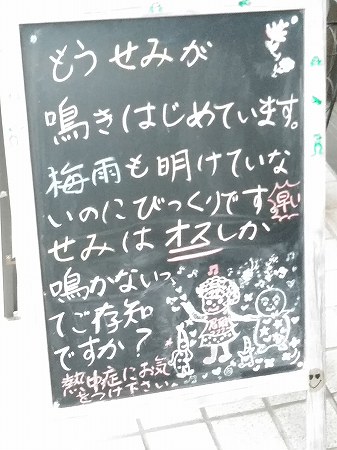 もうせみが
鳴きはじめています。
梅雨も明けていな
いのにびっくりです
早い
せみはオスしか
鳴かないっ
てご存知
ですか？
熱中症にお気
をつけ下さい。